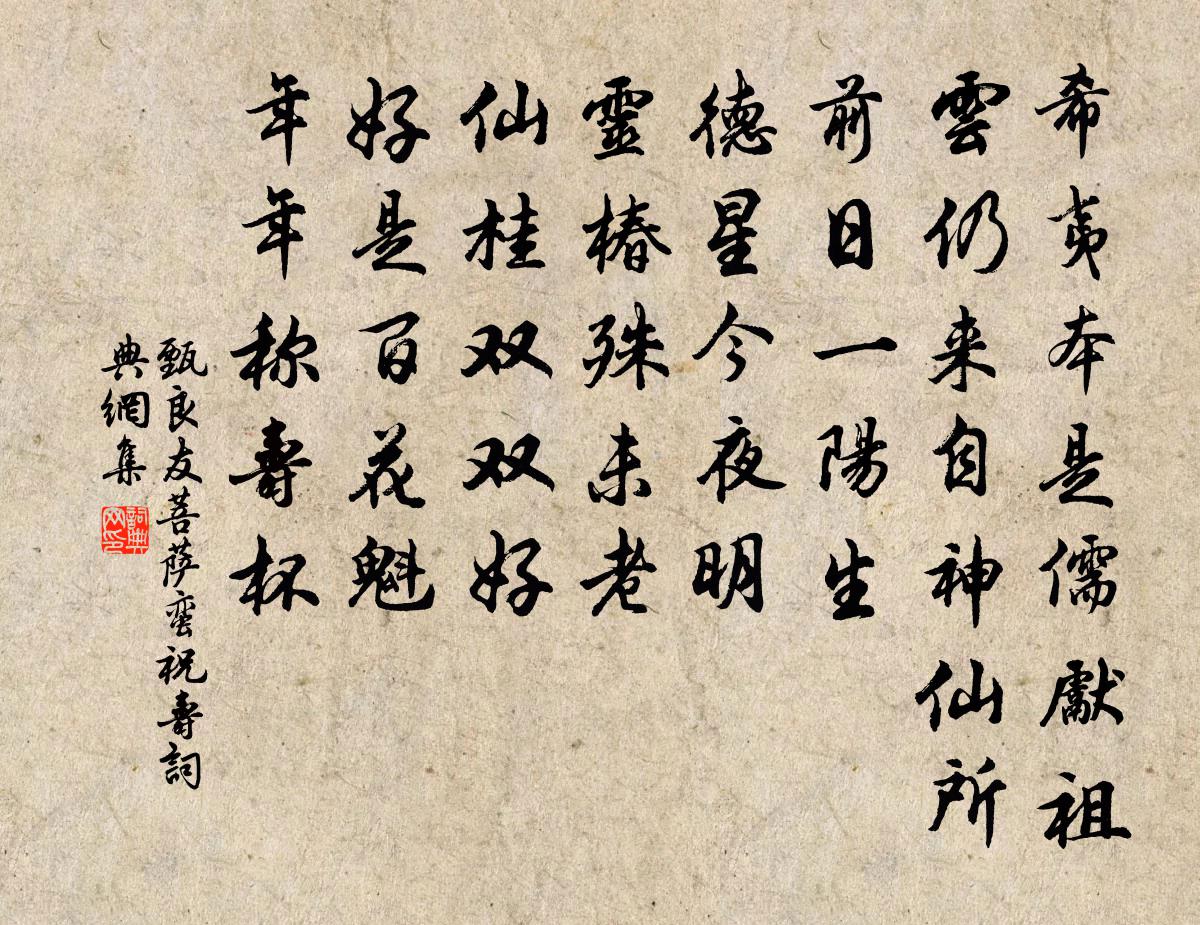 希夷本是儒獻祖
雲仍来自神仙所
前日一陽生
德星今夜明
靈椿殊未老
仙桂双双好
好是百花魁
年年称壽杯
甄良友菩萨蛮祝壽詞
典網集
詞典网印